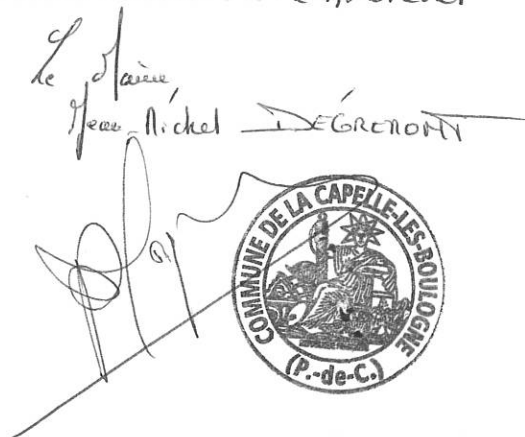 Le Maire,
Jean-Michel DÉGREMONT
COMMUNE DE LA CAPELLE-LES-BOULOGNE
(P.-de-C.)